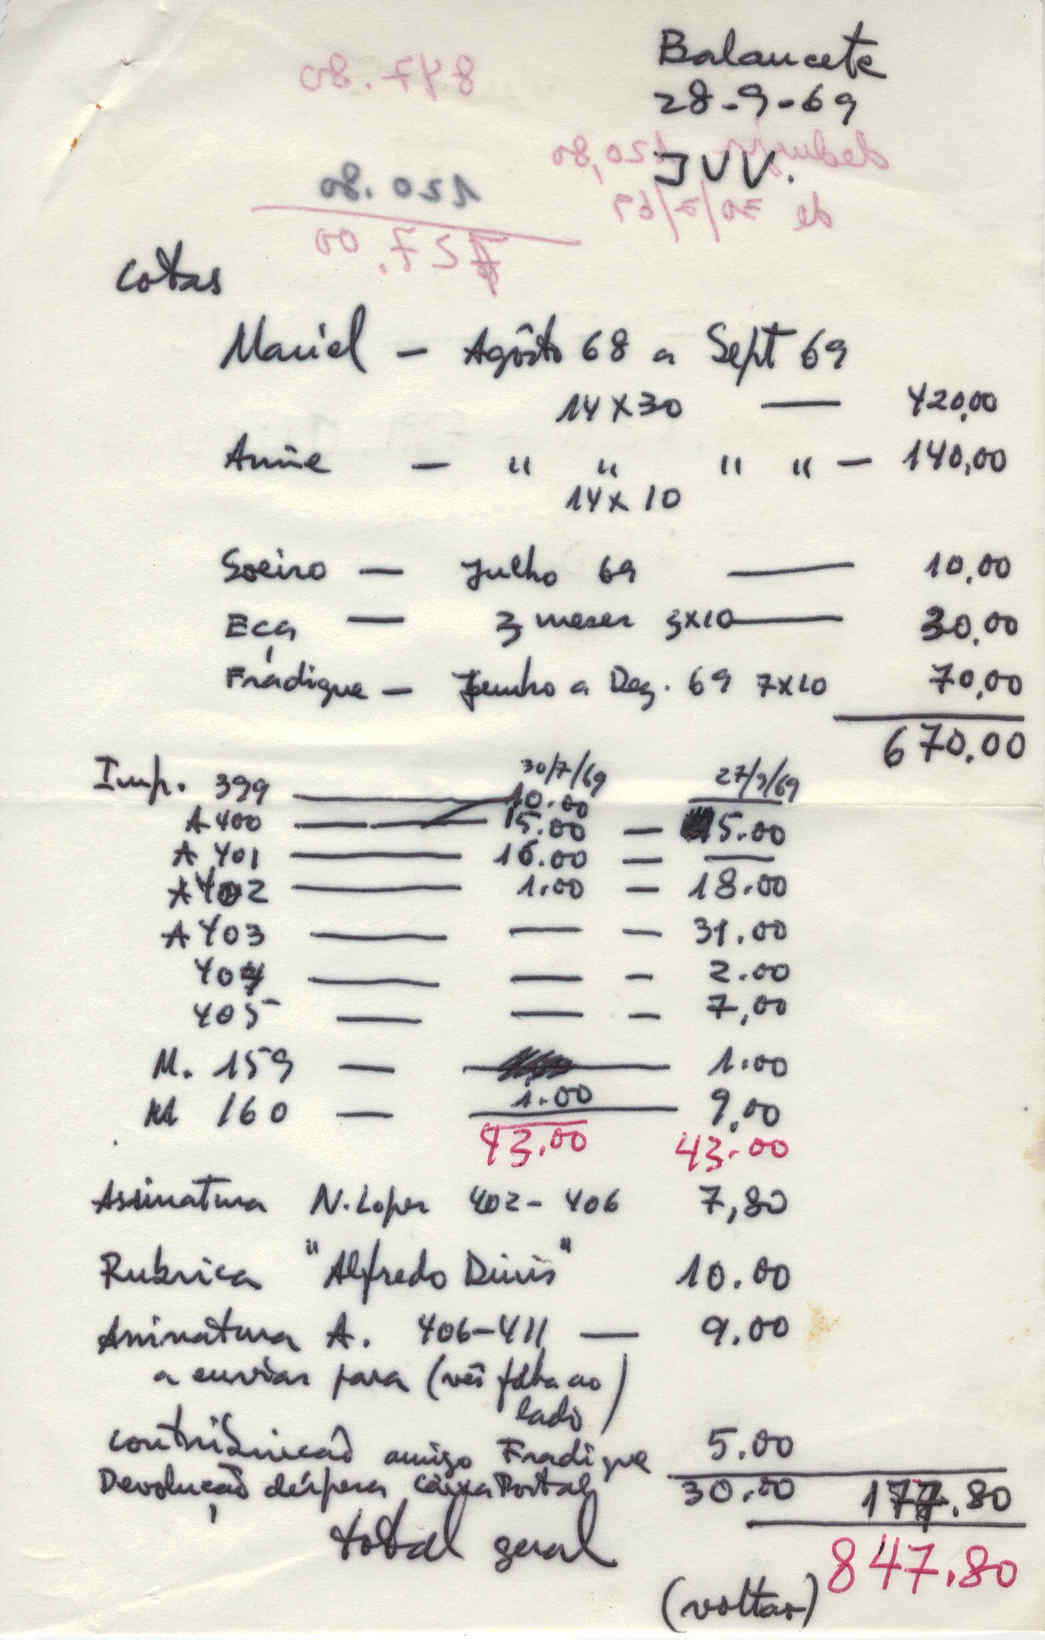 Balancete
28-9-69
JVV.
cotas
Maciel — Agôsto 68 a Sept 69
14 X 30 — 420,00
Annie — " " " " — 140,00
14 x 10
Soeiro — Julho 69 — 10,00
Eça — 3 meses 3x10 — 30,00
Fradique — Junho a Dez. 69 7x10 70,00
670.00
30/7/69 27/9/69
Imp. 399 — 10.00 —
A 400 — 15.00 — 15.00
A 401 — 16.00 — —
A 402 — 1.00 — 18.00
A 403 — — — 31.00
404 — — — 2.00
405 — — — 7,00
M. 159 — — 1.00
M 160 — 1.00 — 9,00
43.00 43.00
Assinatura N. Lopes 402 - 406 7,80
Rubrica "Alfredo Dinis" 10.00
Assinatura A. 406-411 — 9.00
a enviar para (vêr folha ao
lado)
contribuicão amigo Fradique 5.00
Devolução déspesa Caixa Postal 30.00 177.80
total geral 847.80
(voltar)